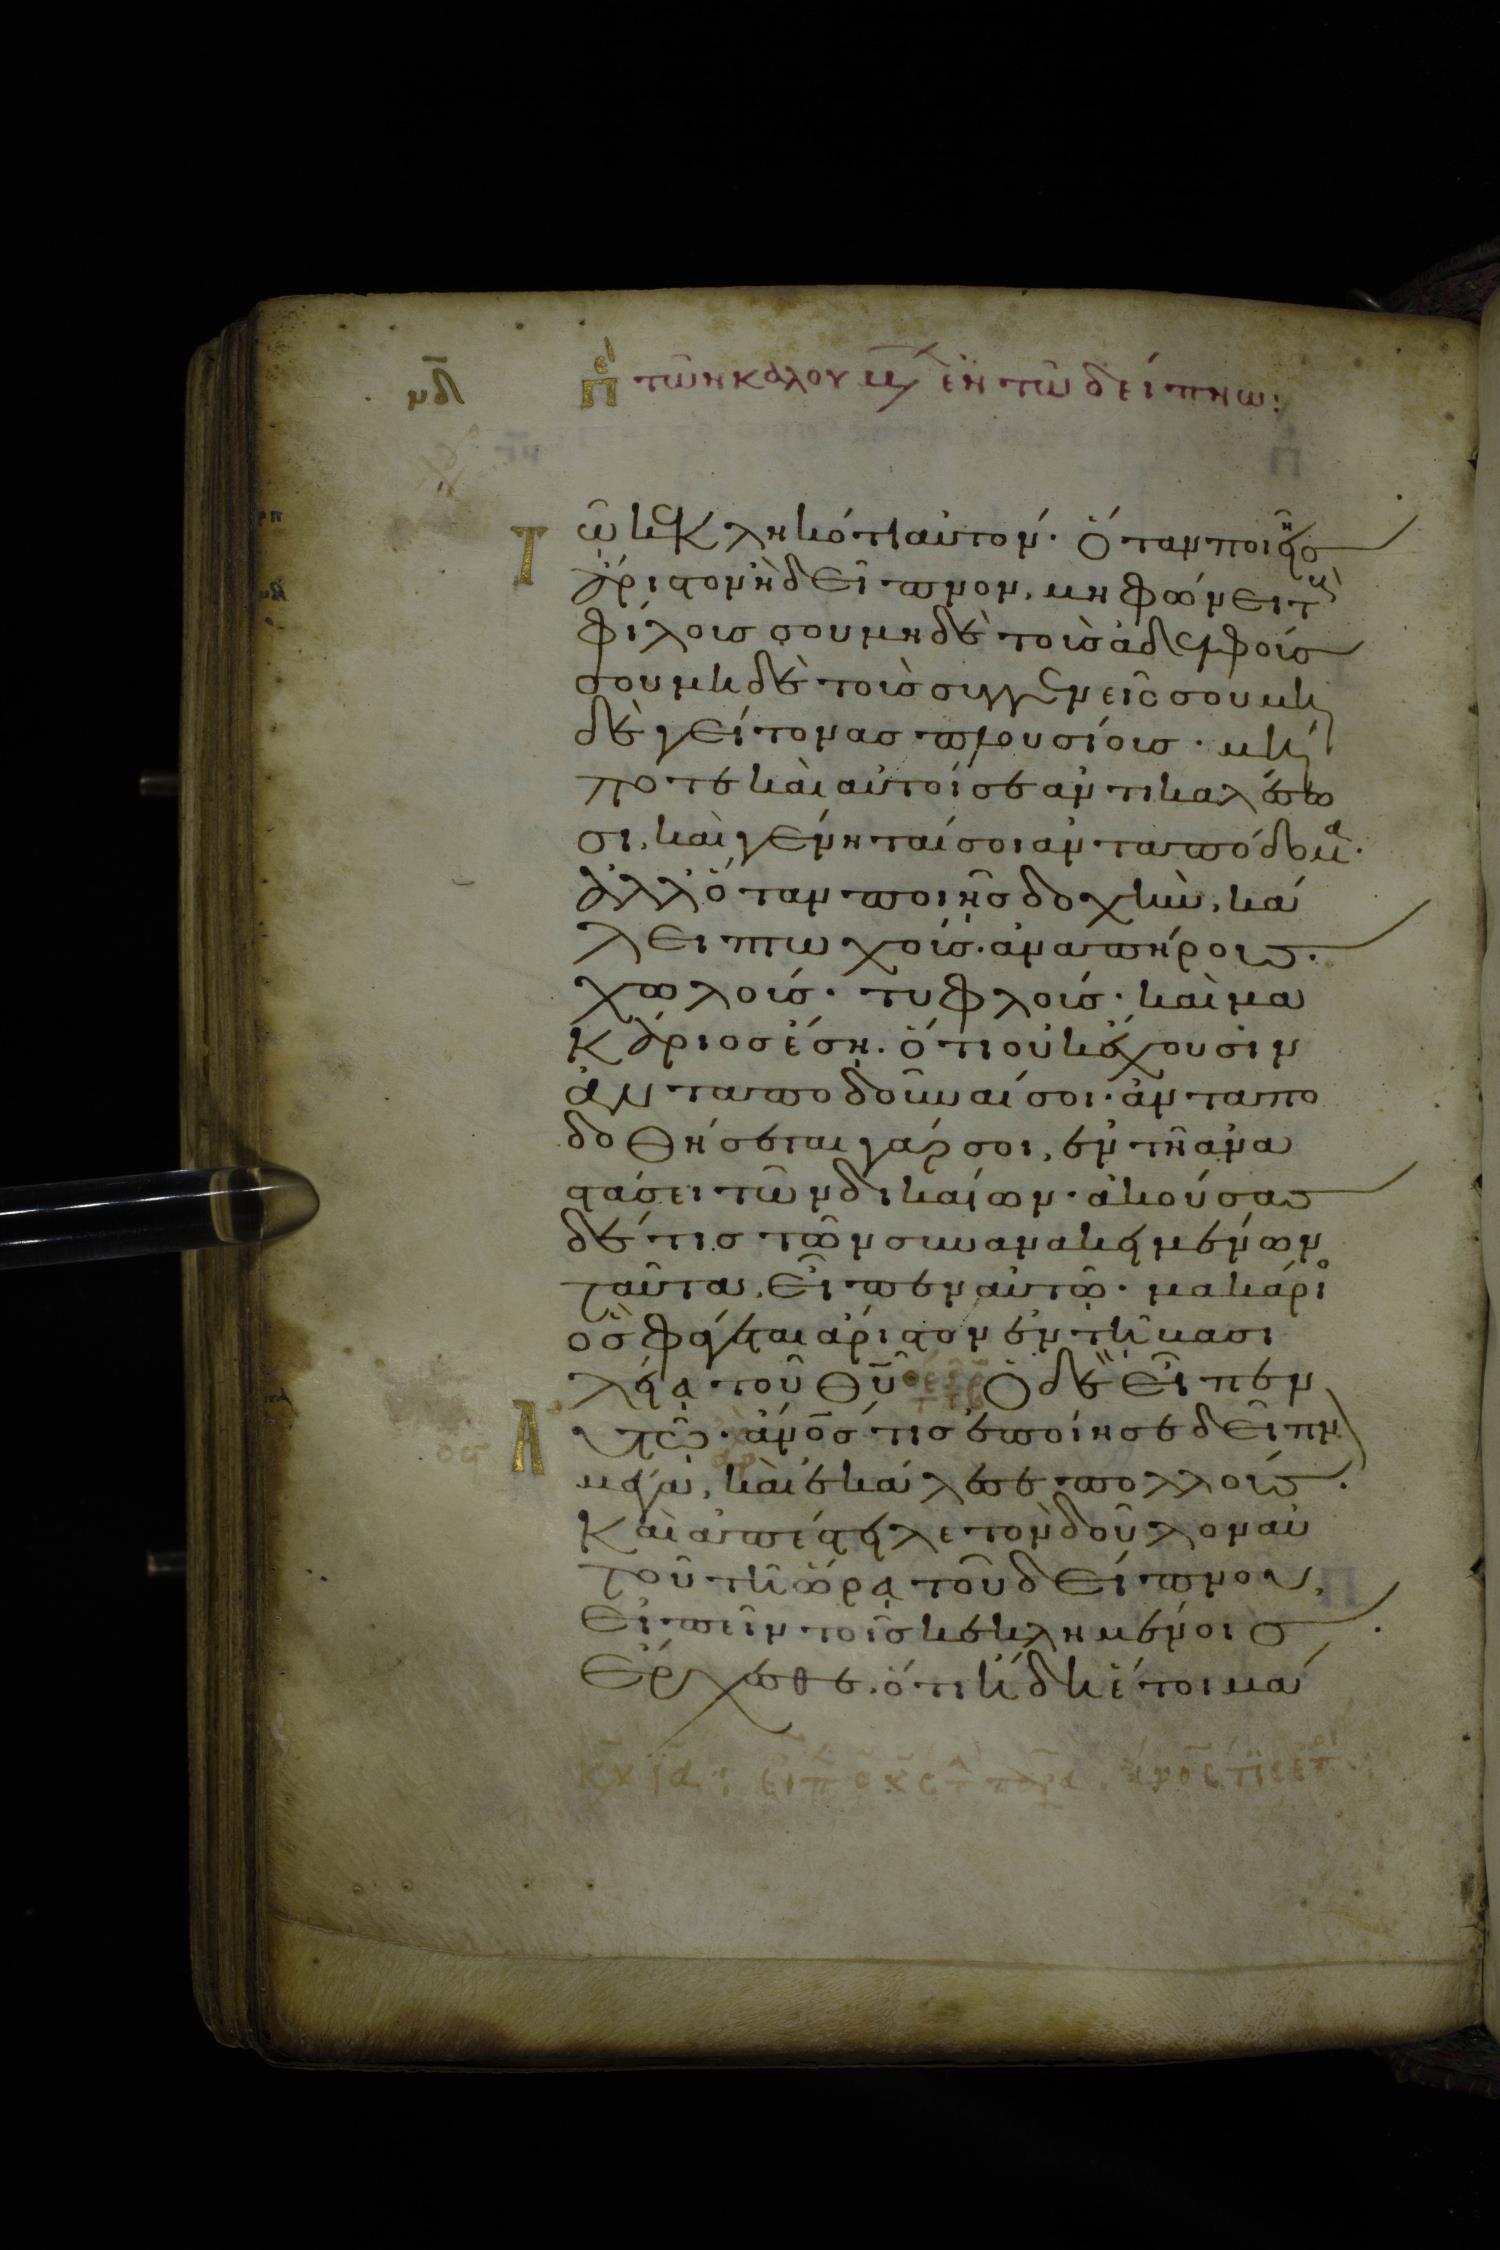 νδ πε τῶν καλουμ ἐν τῶ δείπνω:
Τῶ κεκληκότι αὐτόν· ὅταν ποιῆς
ἄριστον ἢ δεῖπνον, μὴ φώνει τοὺ
φίλοις σου μηδὲ τοὶς ἀδελφοίς
σου μηδὲ τοὶς συγγενεῖς σου μη
δὲ γείτονας πλουσίοις· μή
ποτε καὶ αὐτοί σε ἀντικαλέσω
σι, καὶ γένηταί σοι ἀνταπόδομα·
ἀλλ' ὅταν ποιῆς δοχὴν, κά
λει πτωχοίς· ἀναπήροις·
χωλοίς· τυφλοίς· καὶ μα
κάριος ἔση· ὅτι οὐκ ἔχουσιν
ἀνταποδοῦναί σοι· ἀνταπο
δοθήσεται γάρ σοι, ἐν τῆ ἀνα
στάσει τῶν δικαίων· ἀκούσας
δέ τις τῶν συνανακειμένων
ταῦτα, εἶπεν αὐτῶ· μακάρι
ος ὃς φάγεται ἄριστον ἐν τῆ βασι
λεία τοῦ θυ Ὁ δὲ εἶπεν
αυτῶ· Ἄνος τις ἐποίησε δεῖπν
μέγα, καὶ ἐκάλεσε πολλοίς·
Καὶ ἀπέστειλε τὸν δοῦλον αὐ
τοῦ τῆ ὥρα τοῦ δείπνου,
εἰπεῖν τοῖς κεκλημένοις
Ἔρχεσθε· ὅτι ἤδη ἕτοιμά